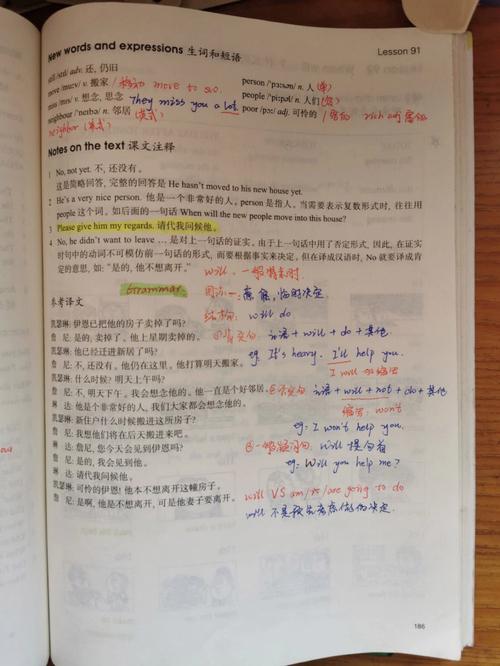 New words and expressions 生词和短语
Lesson 91
still /stɪl/ adv. 还, 仍旧
move /muːv/ v. 搬家 / 移动 move to sw.
miss /mɪs/ v. 想念, 思念 They miss you a lot.
neighbour /'neɪbə/ n. 邻居 (英式)
neighbor (美式)
person /'pɜːsən/ n. 人 (单)
people /'piːpəl/ n. 人们 (复)
poor /pɔː/ adj. 可怜的 / 贫穷的 rich adj 富裕
Notes on the text 课文注释
1 No, not yet. 不, 还没有。
这是简略回答, 完整的回答是 He hasn't moved to his new house yet.
2 He's a very nice person. 他是一个非常好的人。person 是指人。当需要表示复数形式时, 往往用
people 这个词。如后面的一句话 When will the new people move into this house?
3 Please give him my regards. 请代我问候他。
4 No, he didn't want to leave … 是对上一句话的证实。由于上一句话中用了否定形式, 因此, 在证实
时句中的动词不可模仿前一句话的形式, 而要根据事实来决定, 但在译成汉语时, No 就要译成肯
定的意思, 如: "是的, 他不想离开。"
will, 一般将来时.
Grammar.
用法一: 意愿, 临时决定.
结构: will do
①肯定句: 主语 + will + do + 其他
eg: It's heavy. I'll help you.
I will 的缩写
②否定句 主语 + will + not + do + 其他
缩写: won't
eg: I won't help you.
③一般疑问句: Will 提句首
eg: Will you help me?
will VS am/is/are going to do
will 不是预先考虑做的决定.
参考译文
凯瑟琳: 伊恩已把他的房子卖掉了吗?
詹 尼: 是的, 卖掉了。他上星期卖掉的。
凯瑟琳: 他已经迁进新居了吗?
詹 尼: 不, 还没有。他仍在这里。他打算明天搬家。
凯瑟琳: 什么时候? 明天上午吗?
詹 尼: 不, 明天下午。我会想念他的。他一直是个好邻居。
琳 达: 他是个非常好的人, 我们大家都会想念他的。
凯瑟琳: 新住户什么时候搬进这所房子?
詹 尼: 我想他们将在后天搬进来吧。
琳 达: 詹尼, 您今天会见到伊恩吗?
詹 尼: 是的, 我会见到他。
琳 达: 请代我问候他。
凯瑟琳: 可怜的伊恩! 他本不想离开这幢房子。
詹 尼: 是啊, 他是不想离开, 可是他妻子要离开。
186